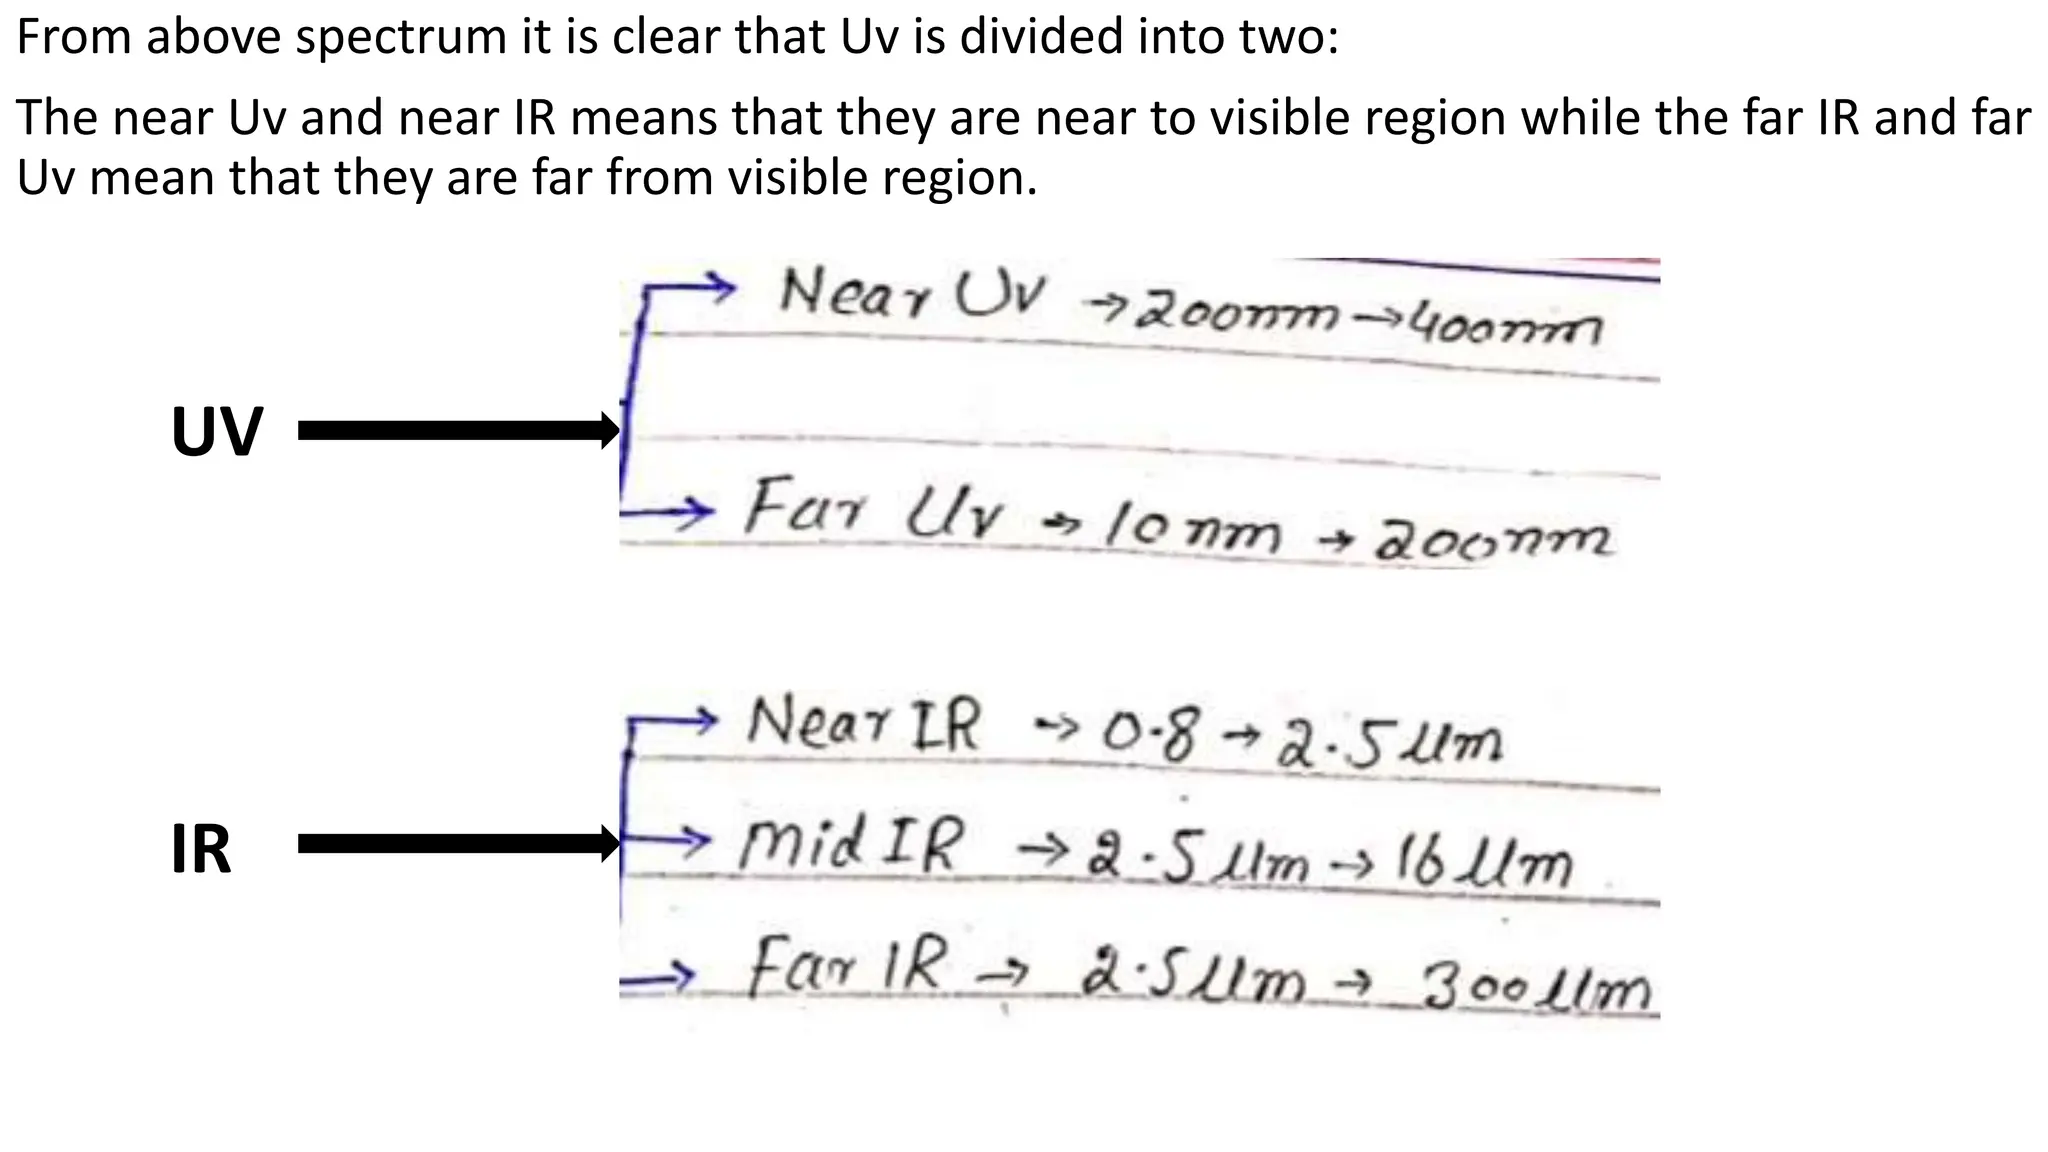 From above spectrum it is clear that Uv is divided into two:
The near Uv and near IR means that they are near to visible region while the far IR and far
Uv mean that they are far from visible region.
Near Uv → 200nm → 400nm
UV
Far Uv → 10nm → 200nm
Near IR → 0.8 → 2.5 µm
IR
mid IR → 2.5 µm → 16 µm
Far IR → 2.5 µm → 300 µm